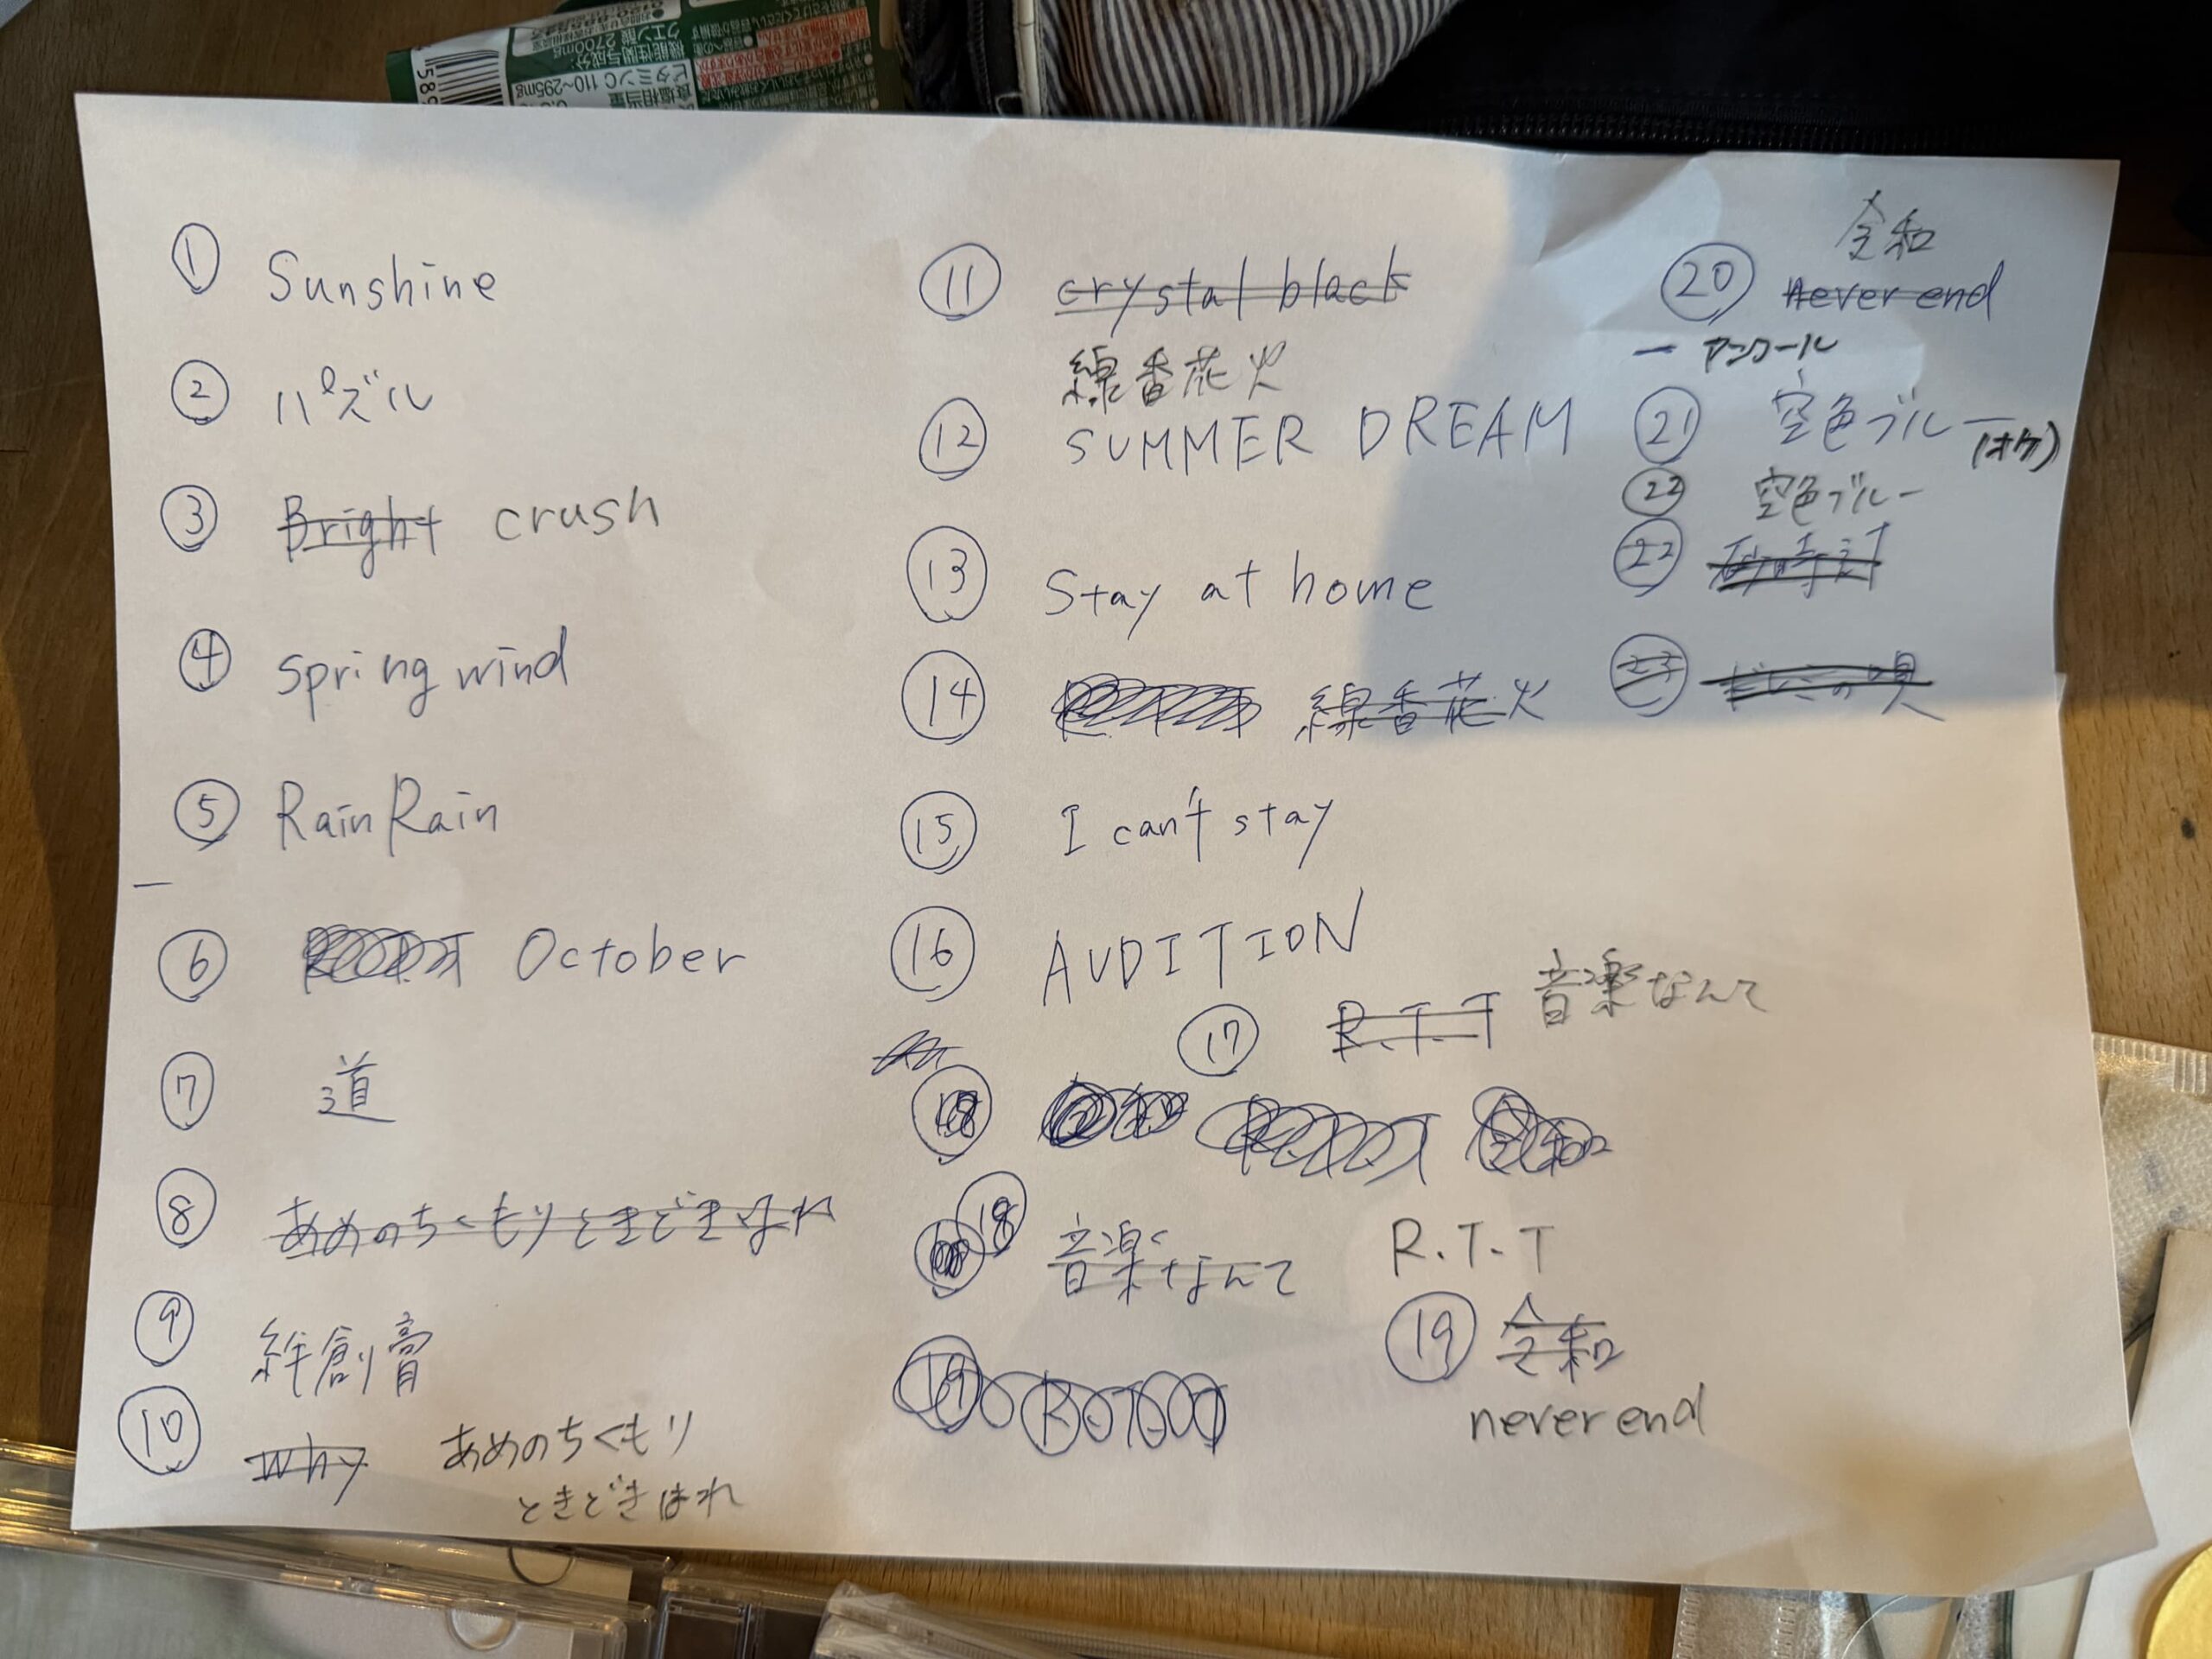 ① Sunshine
② パズル
③ Bright crush
④ spring wind
⑤ Rain Rain
—
⑥ October
⑦ 道
⑧ あめのちくもりときどきはれ
⑨ 絆創膏
⑩ why あめのちくもり
ときどきはれ
⑪ crystal black
線香花火
⑫ SUMMER DREAM
⑬ Stay at home
⑭ 線香花火
⑮ I can't stay
⑯ AUDITION
⑰ R.T.T 音楽なんて
⑱ 音楽なんて R.T.T
⑲ R.T.T
⑲ 令和
never end
令和
⑳ never end
— アンコール
㉑ 空色ブルー (オケ)
㉒ 空色ブルー
㉒ 砂時計
㉓
クエン酸 2700mg
ビタミンC 110~295mg
食塩相当量
機能性関与成分: